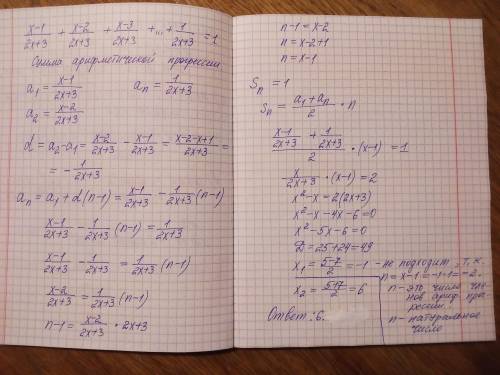 (x-1)/(2x+3) + (x-2)/(2x+3) + (x-3)/(2x+3) + ... + 1/(2x+3) = 1
Сумма арифметической прогрессии
a₁ = (x-1)/(2x+3) aₙ = 1/(2x+3)
a₂ = (x-2)/(2x+3)
d = a₂-a₁ = (x-2)/(2x+3) - (x-1)/(2x+3) = (x-2-x+1)/(2x+3) =
= -1/(2x+3)
aₙ = a₁ + d(n-1) = (x-1)/(2x+3) - 1/(2x+3) (n-1)
(x-1)/(2x+3) - 1/(2x+3) (n-1) = 1/(2x+3)
(x-1)/(2x+3) - 1/(2x+3) = 1/(2x+3) (n-1)
(x-2)/(2x+3) = 1/(2x+3) (n-1)
n-1 = (x-2)/(2x+3) · 2x+3
n-1 = x-2
n = x-2+1
n = x-1
Sₙ = 1
Sₙ = (a₁+aₙ)/2 · n
((x-1)/(2x+3) + 1/(2x+3))/2 · (x-1) = 1
x/(2x+3) · (x-1) = 2
x²-x = 2(2x+3)
x²-x-4x-6=0
x²-5x-6=0
D = 25+24=49
x₁ = (5-7)/2 = -1 - не подходит, т.к.
n = x-1 = -1-1 = -2.
x₂ = (5+7)/2 = 6
n - это число чле-
нов ариф. про-
грессии.
n - натуральное
число
Ответ: 6.